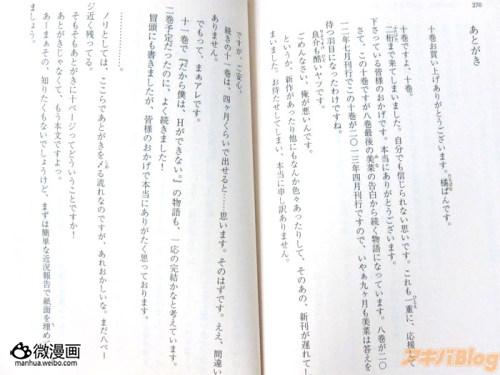 270
あとがき
十巻お買い上げありがとうございます。橘ぱんです。
十巻ですよ、十巻。
二桁まで来てしまいました。自分でも信じられない思いです。これも一重に、応援して
下さっている皆様のおかげです。本当にありがとうございます。
さて、この十巻ですが八巻最後の美菜の告白から続く物語になっています。八巻が二〇
一二年七月刊行でこの十巻が二〇一三年四月刊行ですので、いやぁ九ヶ月も美菜は答えを
待つ羽目になったわけですね。
良介も酷いヤツです。
ごめんなさい、俺が悪いんです。
というか、新作があったり他にもなんか色々とあったりして、そのあの、新刊が遅れてし
まいました。お待たせしてしまい、本当に申し訳ありません。
ですが、ご安心、
続きの十一巻は、四ヶ月くらいで出せると……思います。そのはずです。ええ、間違い
ありません。
でもって、まぁアレです。
十一巻で『だから僕は、Hができない。』の物語も、一応の完結かなと考えています。
三巻予定だったのに、よく続きました!
冒頭にも書きましたが、皆様のおかげで本当にありがたく思っております。
……………。
ノリとしては、ここらであとがきを〆る流れなのですが、あれおかしいな。まだ八ペー
ジ近く残ってる。
そもそもあとがきに十ページってどういうことですか!
あとがきじゃなくて、もう本文ですよっ。
あーまぁその、知りたくもないでしょうけど、まずは簡単な近況報告で紙面を埋め
微漫画
manhua.weibo.com
アキバBlog